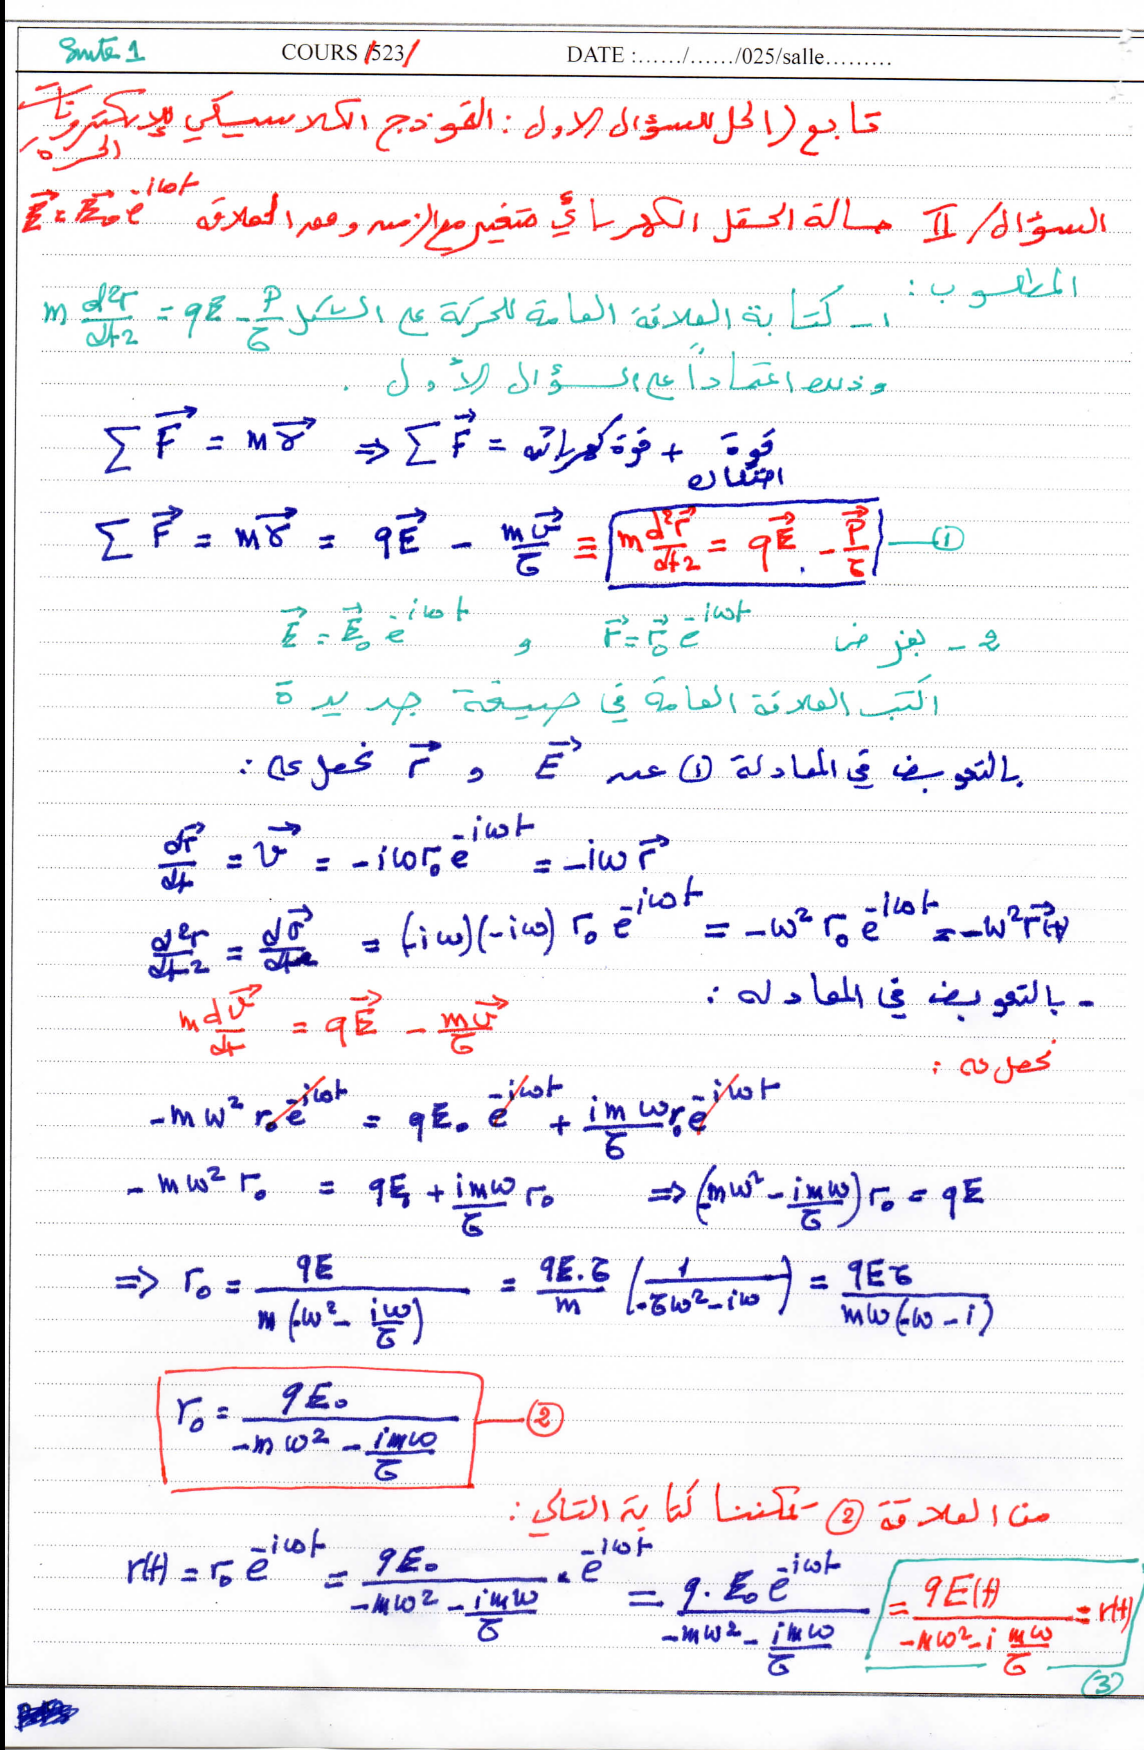 Suite 1 COURS /523/ DATE :....../....../025/salle.........
تابع (الحل للسؤال الاول : النموذج الكلاسيكي للإلكترونات الحرة)
السؤال/ II حالة الحقل الكهربائي متغير مع الزمن وفق العلاقة $\vec{E} = \vec{E}_0 e^{-i\omega t}$
المطلوب :
1- كتابة العلاقة العامة للحركة على الشكل $m\frac{d^2r}{dt^2} = qE - \frac{P}{\tau}$
وذلك اعتماداً على السؤال الأول .
$\sum \vec{F} = m\vec{\gamma} \Rightarrow \sum \vec{F} =$ قوة كهربائية + قوة احتكاك
$\sum \vec{F} = m\vec{\gamma} = q\vec{E} - \frac{m\vec{v}}{\tau} \equiv m\frac{d^2\vec{r}}{dt^2} = q\vec{E} - \frac{\vec{P}}{\tau}$ — ①
2- بفرض $\vec{r} = \vec{r}_0 e^{-i\omega t}$ و $\vec{E} = \vec{E}_0 e^{-i\omega t}$
اكتب العلاقة العامة في صيغة جديدة
بالتعويض في المعادلة ① عن $\vec{E}$ و $\vec{r}$ نحصل على :
$\frac{d\vec{r}}{dt} = \vec{v} = -i\omega r_0 e^{-i\omega t} = -i\omega \vec{r}$
$\frac{d^2r}{dt^2} = \frac{d\vec{v}}{dt} = (-i\omega)(-i\omega) r_0 e^{-i\omega t} = -\omega^2 r_0 e^{-i\omega t} = -\omega^2 \vec{r}(t)$
- بالتعويض في المعادلة :
$m\frac{d\vec{v}}{dt} = q\vec{E} - \frac{m\vec{v}}{\tau}$
نحصل على :
$-m\omega^2 r_0 e^{-i\omega t} = qE_0 e^{-i\omega t} + \frac{im\omega}{\tau} r_0 e^{-i\omega t}$
$-m\omega^2 r_0 = qE_0 + \frac{im\omega}{\tau} r_0 \Rightarrow (-m\omega^2 - \frac{im\omega}{\tau}) r_0 = qE$
$\Rightarrow r_0 = \frac{qE}{m(-\omega^2 - \frac{i\omega}{\tau})} = \frac{qE.\tau}{m} \left(\frac{1}{-\tau\omega^2 - i\omega}\right) = \frac{qE\tau}{m\omega(-\omega - i)}$
$r_0 = \frac{qE_0}{-m\omega^2 - \frac{im\omega}{\tau}}$ — ②
من العلاقة ② يمكننا كتابة التالي :
$r(t) = r_0 e^{-i\omega t} = \frac{qE_0}{-m\omega^2 - \frac{im\omega}{\tau}} \cdot e^{-i\omega t} = \frac{q.E_0 e^{-i\omega t}}{-m\omega^2 - \frac{im\omega}{\tau}} = \frac{qE(t)}{-m\omega^2 - i\frac{m\omega}{\tau}} = r(t)$
③